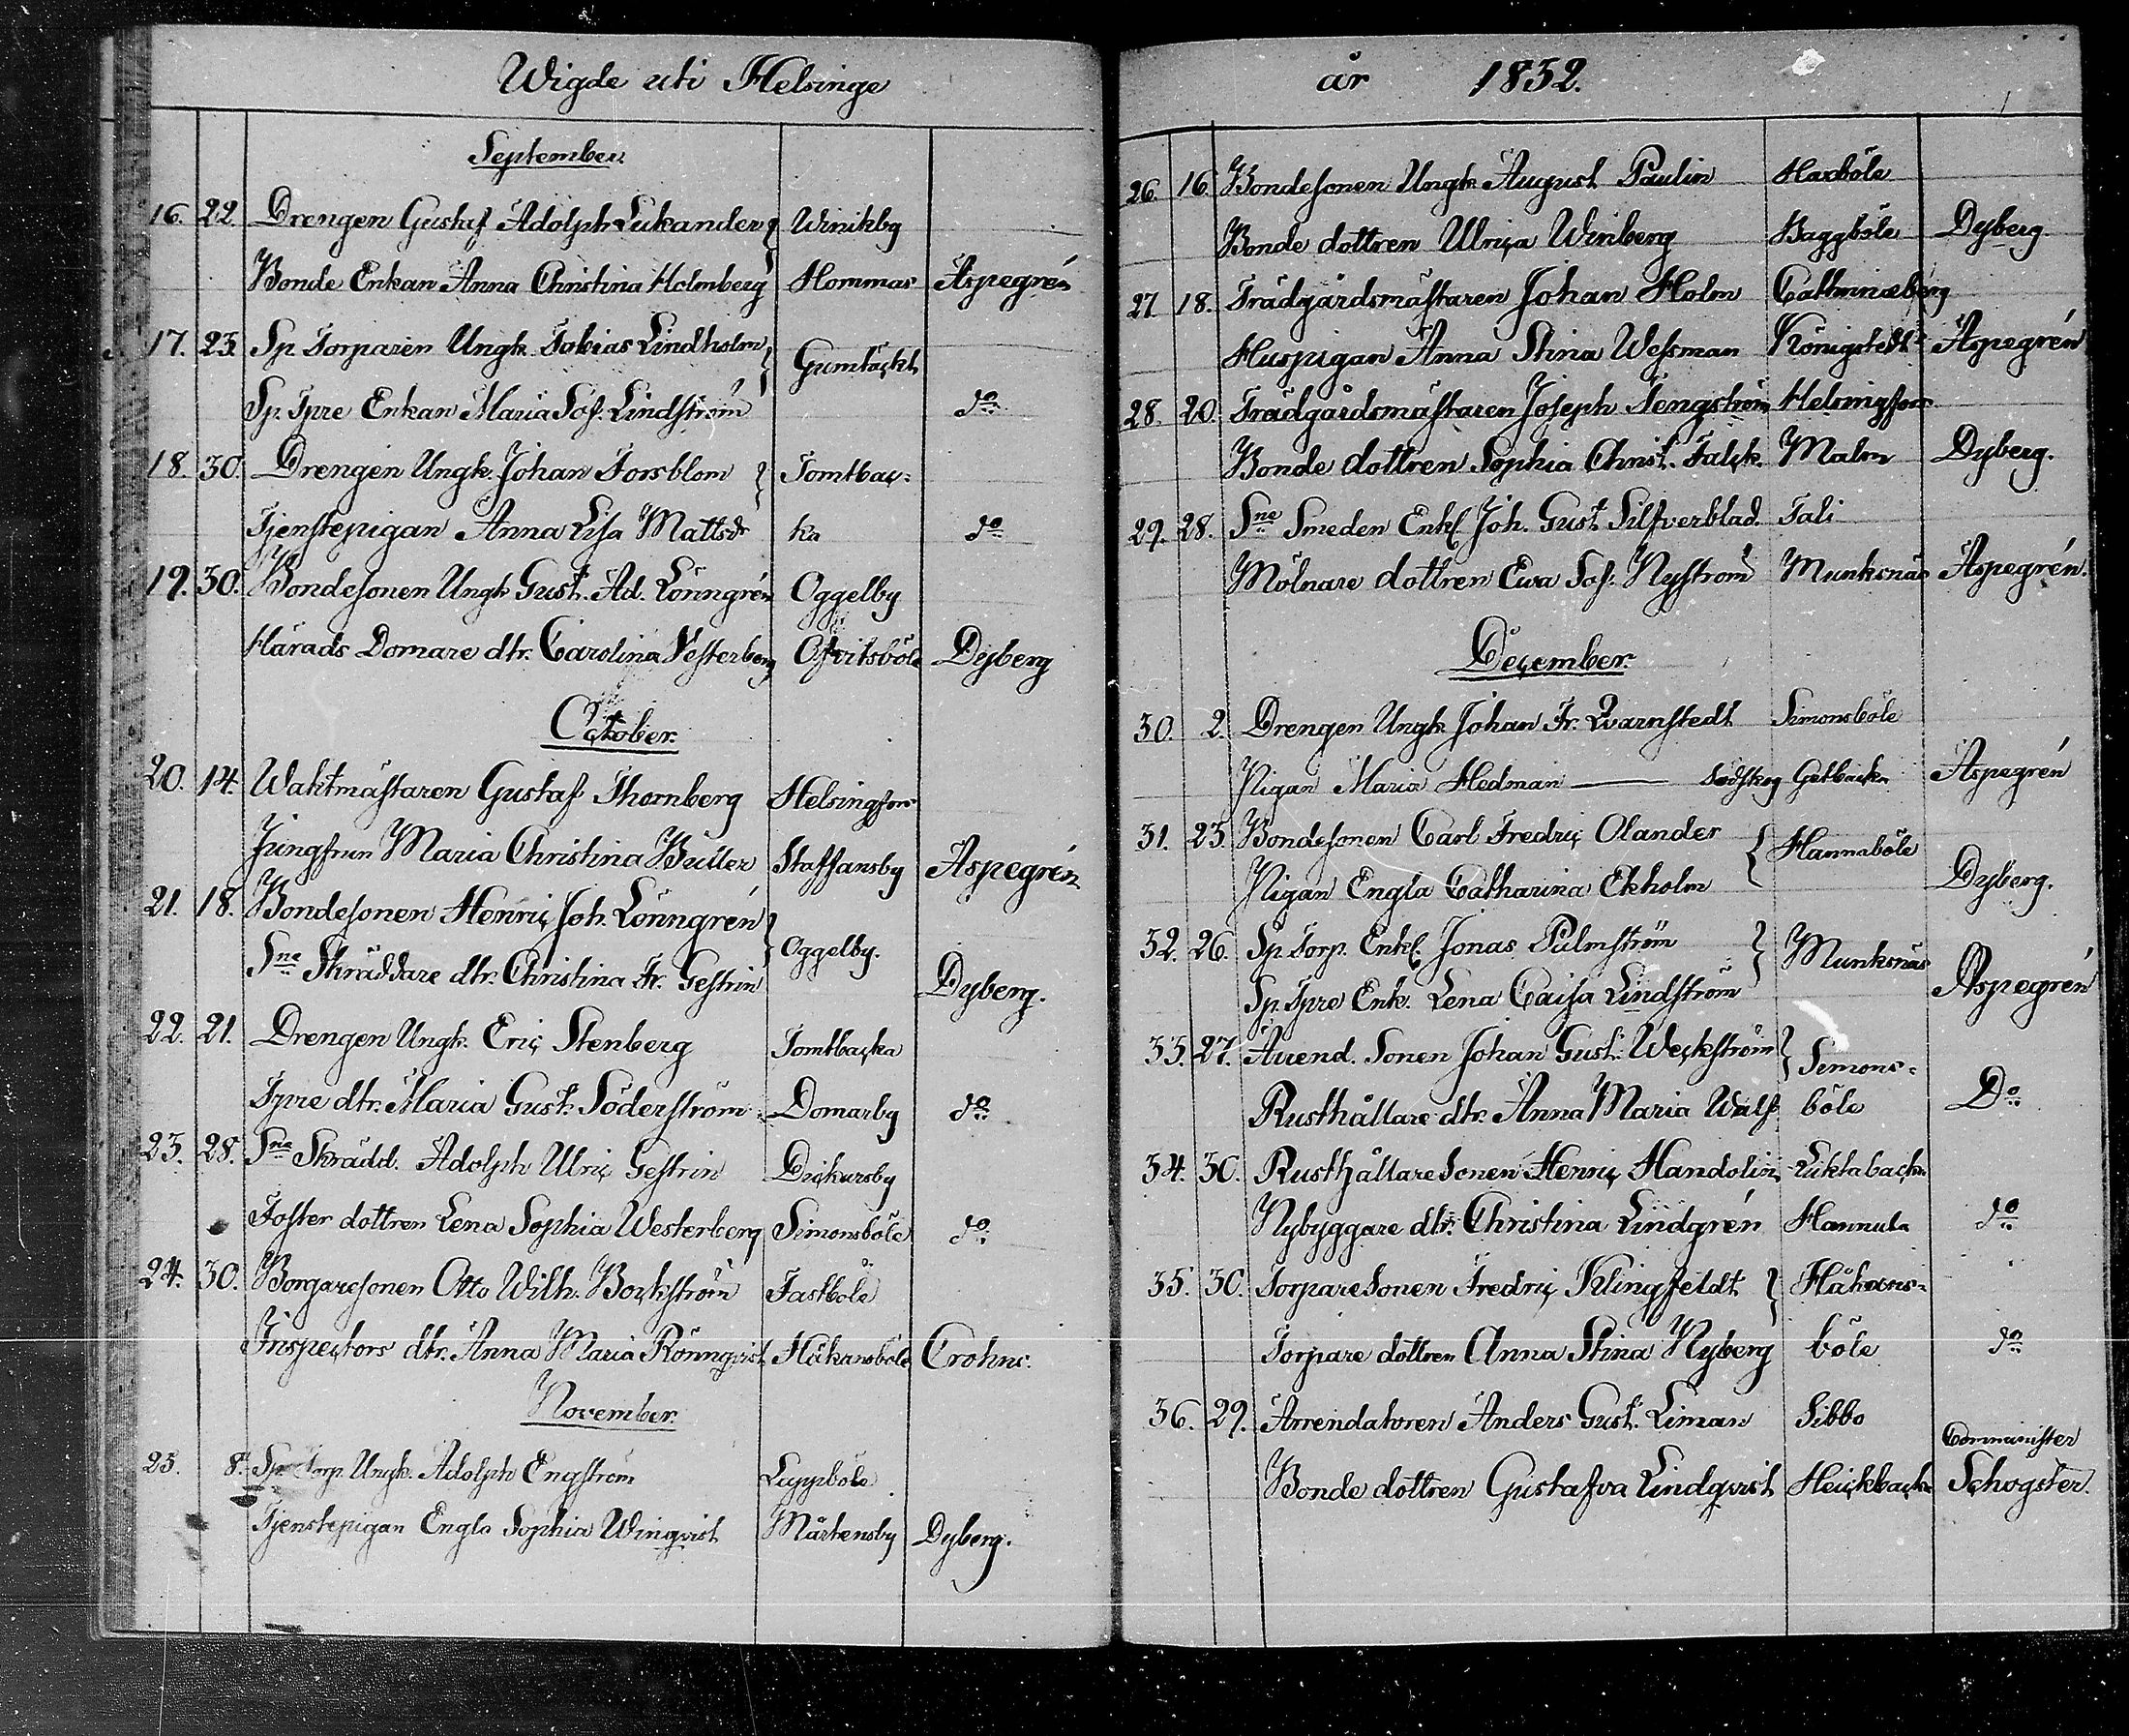 Wigde uti Helsinge
September.
16. 22. Drengen Gustaf Adolph Lukander Winikby
Bonde Enkan Anna Christina Holmberg Hommas Aspegrén
17. 23. Sp. Torparen Ungk. Tobias Lindholm Gumtäckt
Sp. Tpre Enkan Maria Sof. Lindström do
18. 30. Drengen Ungk. Johan Forsblom Tomtbac-
Tjenstepigan Anna Lisa Mattsdr ka do
19. 30. Bondesonen Ungk Gust. Ad. Lönngrén Oggelby
Härads Domare dtr. Carolina Vesterberg Ofvitsböle Dyberg
October.
20. 14. Waktmästaren Gustaf Thornberg Helsingfors
Jungfrun Maria Christina Buller Staffansby Aspegrén
21. 18. Bondesonen Henric Joh. Lönngrén Oggelby.
Sne Skräddare dtr. Christina Fr. Gestrin Dyberg.
22. 21. Drengen Ungk. Eric Stenberg Tomtbacka
Tpre dtr. Maria Gust. Söderström Domarby do
23. 28. Sne Skrädd. Adolph Ulric Gestrin Dickursby
Foster dottren Lena Sophia Westerberg Simonsböle do
24. 30. Borgaresonen Otto Wilh. Bockström Fastböle
Inspectors dtr. Anna Maria Rönnqvist Håkansböle Crohns.
November.
25. 8. Sp. Torp. Ungk. Adolph Engström Lappböle
Tjenstepigan Engla Sophia Winqvist Mårtensby Dyberg.
år 1852.
26. 16. Bondesonen Ungk August Paulin Haxböle
Bonde dottren Ulrica Winberg Baggböle Dyberg.
27 18. Trädgårdsmästaren Johan Holm Cathrinæberg
Huspigan Anna Stina Wessman Königstedt Aspegrén
28. 20. Trädgårdsmästaren Joseph Tengström Helsingfors
Bonde dottren Sophia Christ. Falck. Malm Dyberg.
29. 28. Sne Smeden Enkl. Joh. Gust. Silfverblad. Tali
Mölnare dottren Ewa Sof. Nyström Munksnäs Aspegrén.
December.
30. 2. Drengen Ungk Johan Fr. Qvarnstedt Simonsböle
Pigan Maria Hedman Getbacka Aspegrén
31. 23. Bondesonen Carl Fredric Olander Hannaböle
Pigan Engla Catharina Ekholm Dyberg.
32. 26. Sp. Torp. Enkl. Jonas Palmström Munksnäs
Sp. Tpre Enk. Lena Caisa Lindström Aspegrén
33. 27. Arrend. Sonen Johan Gust. Weckström Simons-
Rusthållare dtr. Anna Maria Walf böle Do
34. 30. Rusthållare Sonen Henric Handolin Luktabacka
Nybyggare dtr. Christina Lindgrén Hannula do
35. 30. Torpare Sonen Fredric Klingfeldt Håkans-
Torpare dottren Anna Stina Nyberg böle do
36. 29. Arrendatoren Anders Gust. Liman Sibbo
Comminister
Bonde dottren Gustafva Lindqvist Heickbacka Schogster.